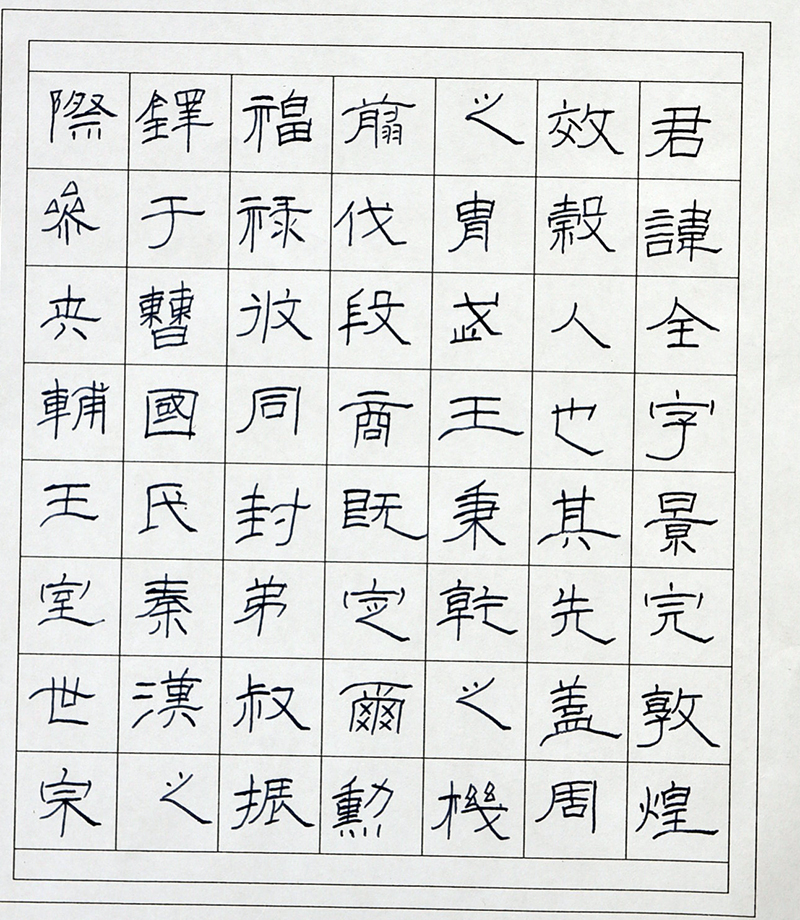 君諱全字景完敦煌
效穀人也其先蓋周
之胄武王秉乾之機
翦伐殷商既定爾勳
福禄攸同封弟叔振
鐸于曹國氏秦漢之
際參夾輔王室世宗